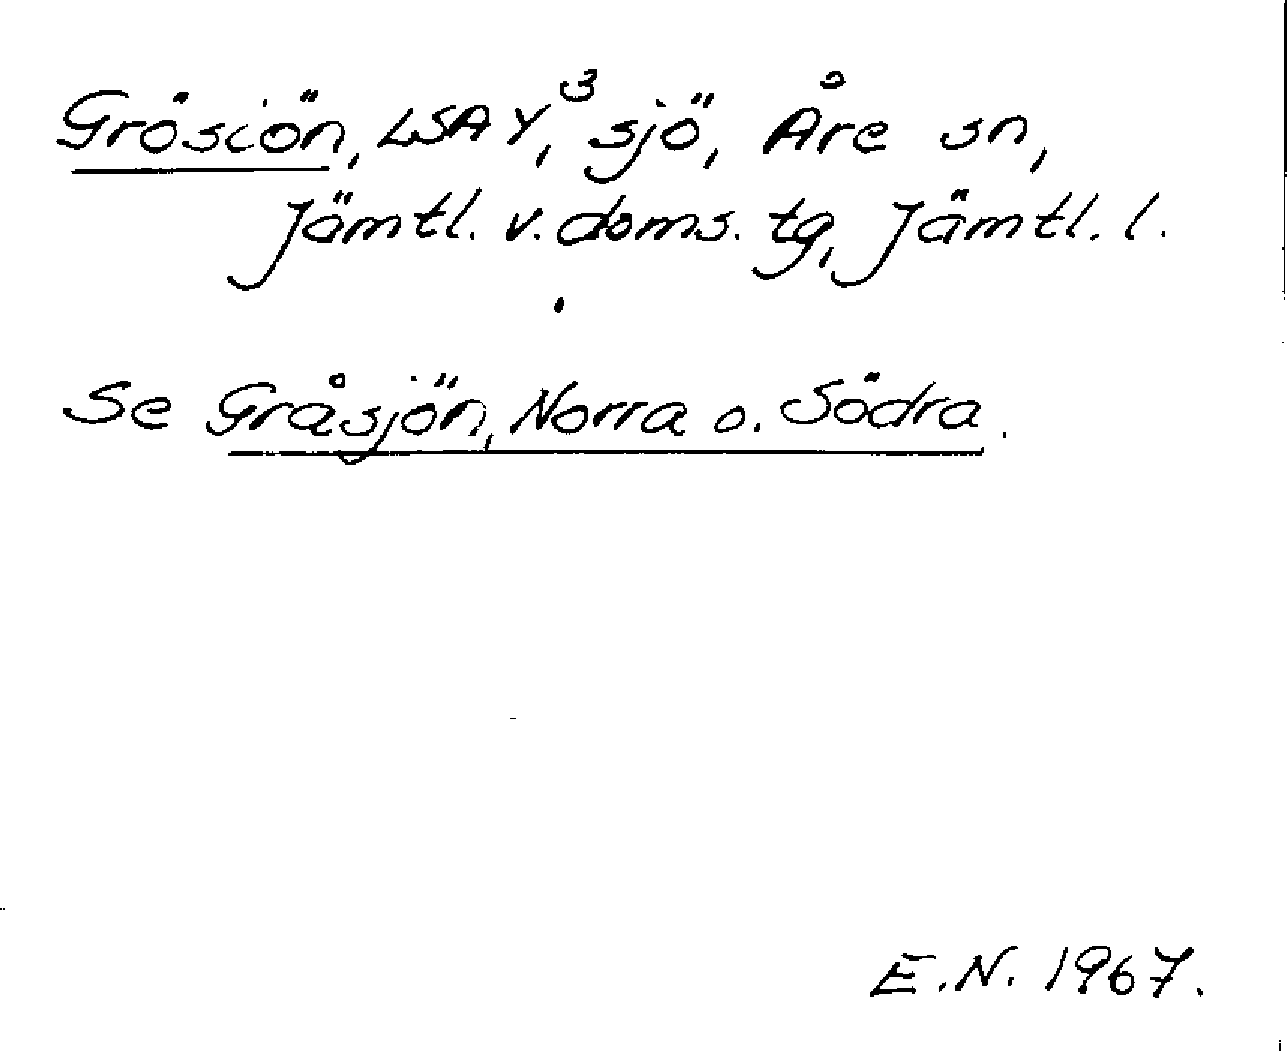 Grösiön, LSA Y,³ sjö, Åre sn,
Jämtl. v. doms. tg, Jämtl. l.
Se Gråsjön, Norra o. Södra.
E.N. 1967.